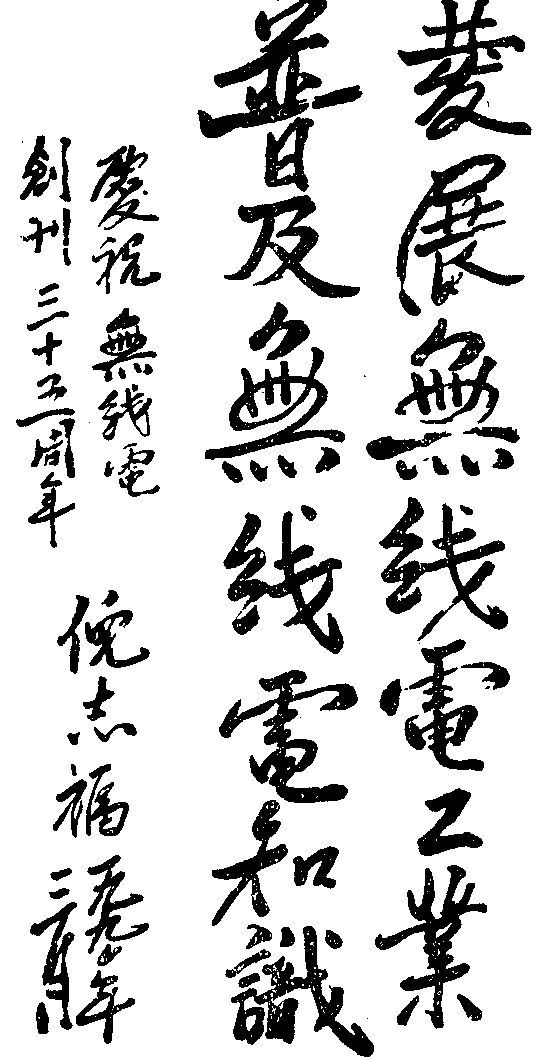 發展無线電工業
普及無线電知識
慶祝無线電
創刊三十五周年
倪志福
一九九〇年